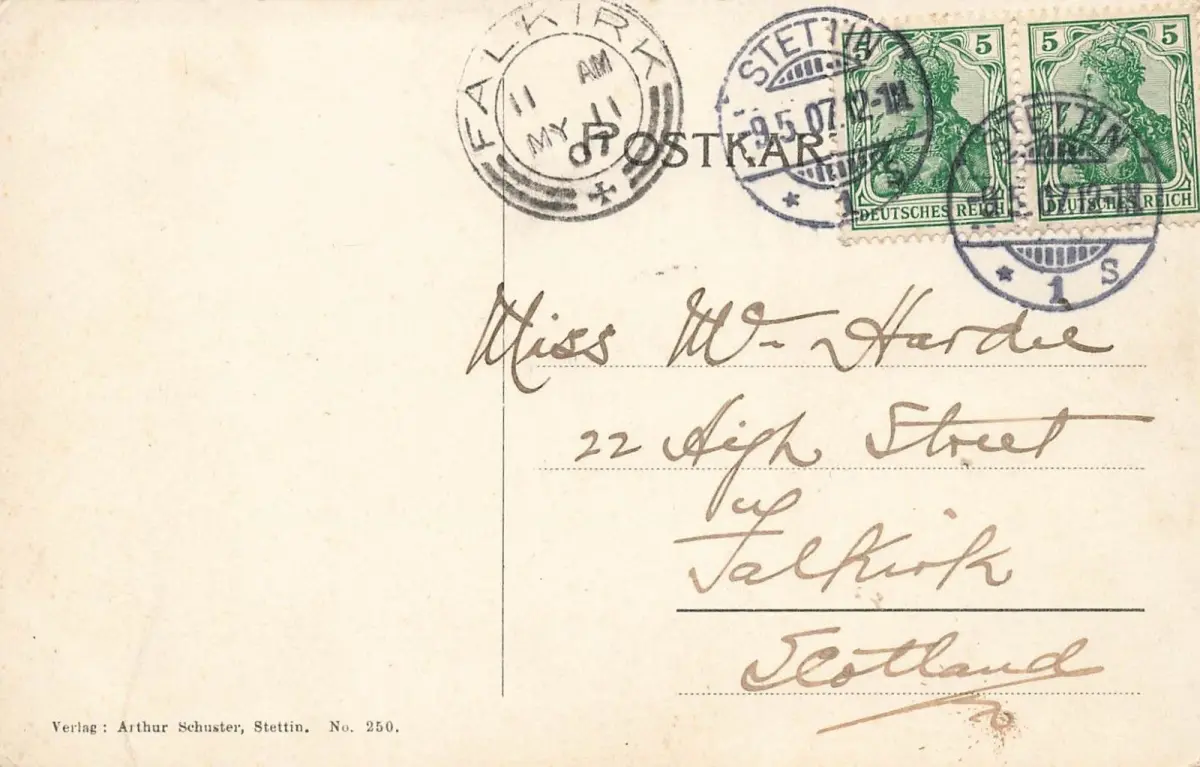 FALKIRK
11 AM
MY 11
07
POSTKAR
STETTIN
9.5.07.12-1N
* 1 S
5 5
DEUTSCHES REICH
5 5
DEUTSCHES REICH
STETTIN
* 1 S
Miss Mc Hardie
22 High Street
Falkirk
Scotland
Verlag: Arthur Schuster, Stettin. No. 250.